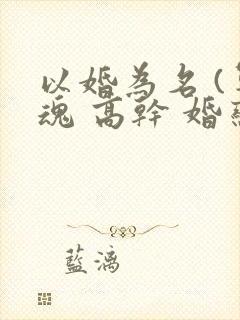 以婚為名(
魂 高幹 婚
藍漓